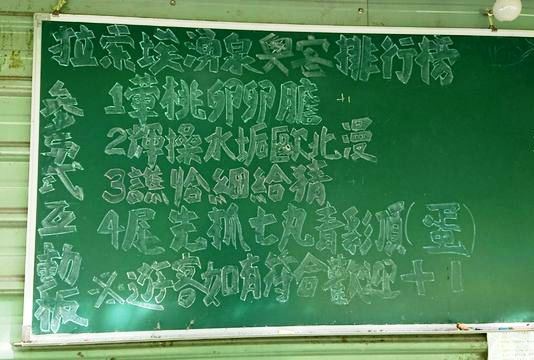 拉索埃湧泉奧客排行榜
參与式互動板
1葷桃卵卵膽
+1
2輝操水垢歐北漫
3譙恰細給猜
4先抓七丸青彩順(蛋)
※遊客如有符合歡迎+1